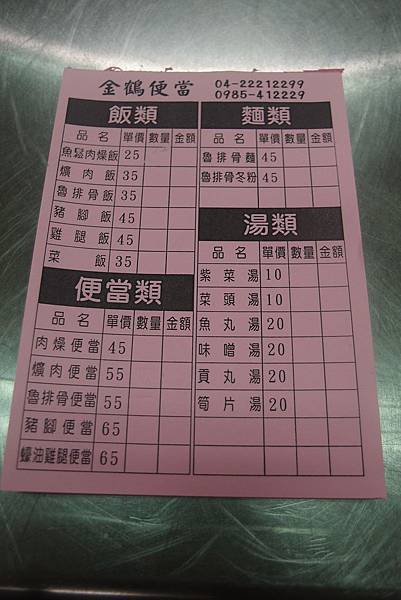 金鶴便當 04-22212299
0985-412229
飯類
品名 單價 數量 金額
魚鬆肉燥飯 25
爌肉飯 35
魯排骨飯 35
豬腳飯 45
雞腿飯 45
菜飯 35
便當類
品名 單價 數量 金額
肉燥便當 45
爌肉便當 55
魯排骨便當 55
豬腳便當 65
蠔油雞腿便當 65
麵類
品名 單價 數量 金額
魯排骨麵 45
魯排骨冬粉 45
湯類
品名 單價 數量 金額
紫菜湯 10
菜頭湯 10
魚丸湯 20
味噌湯 20
貢丸湯 20
筍片湯 20